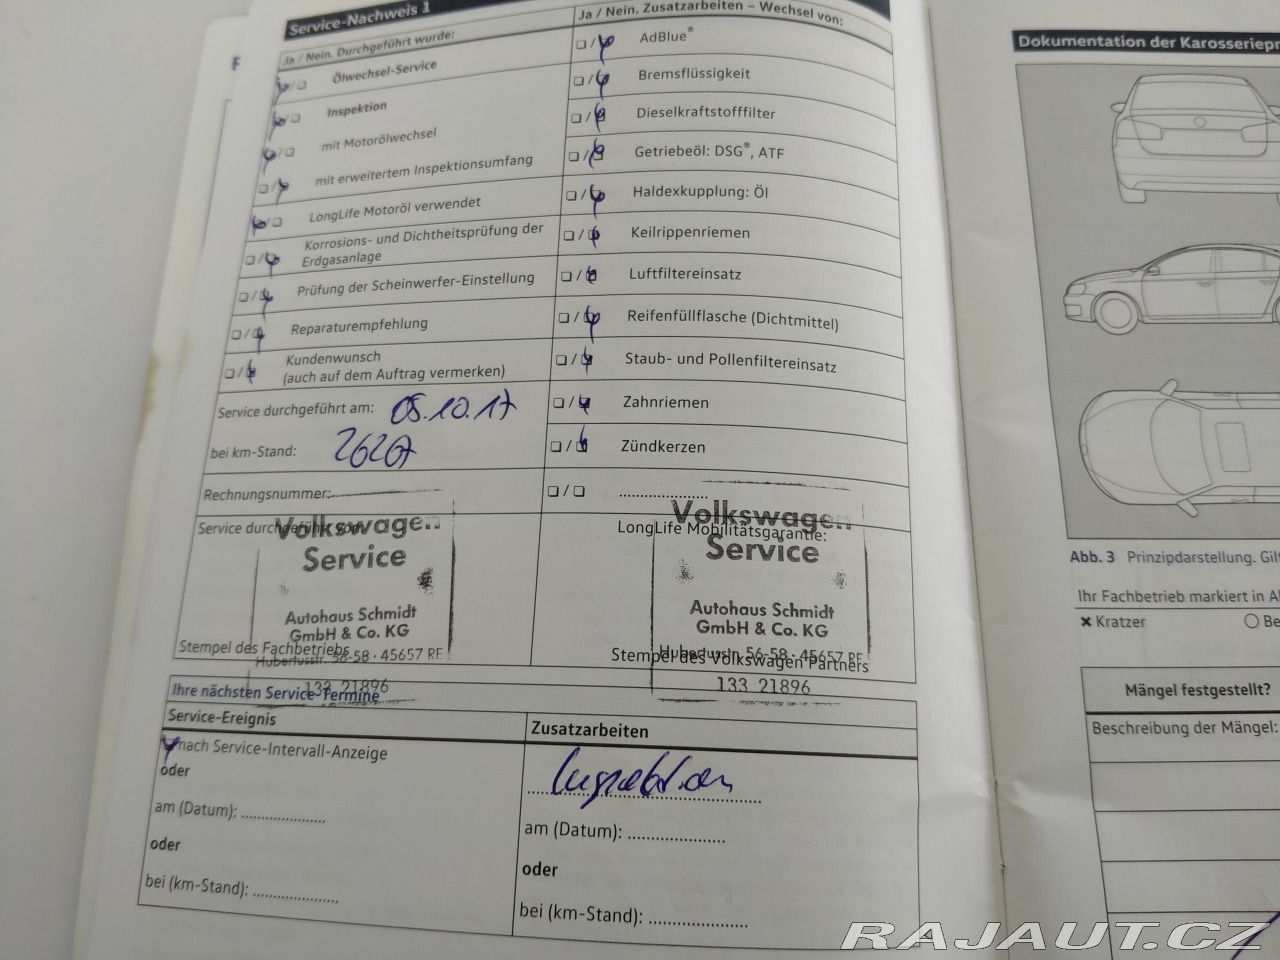 Service-Nachweis 1
Ja / Nein. Durchgeführt wurde:
Ölwechsel-Service
Inspektion
mit Motorölwechsel
mit erweitertem Inspektionsumfang
LongLife Motoröl verwendet
Korrosions- und Dichtheitsprüfung der
Erdgasanlage
Prüfung der Scheinwerfer-Einstellung
Reparaturempfehlung
Kundenwunsch
(auch auf dem Auftrag vermerken)
Service durchgeführt am: 05.10.17
bei km-Stand: 26267
Rechnungsnummer:
Service durchgeführt vom:
Volkswagen
Service
Autohaus Schmidt
GmbH & Co. KG
Stempel des Fachbetriebs
Hubertusstr. 56-58 · 45657 RE
133 21896
Ja / Nein. Zusatzarbeiten – Wechsel von:
AdBlue®
Bremsflüssigkeit
Dieselkraftstofffilter
Getriebeöl: DSG®, ATF
Haldexkupplung: Öl
Keilrippenriemen
Luftfiltereinsatz
Reifenfüllflasche (Dichtmittel)
Staub- und Pollenfiltereinsatz
Zahnriemen
Zündkerzen
LongLife Mobilitätsgarantie:
Volkswagen
Service
Autohaus Schmidt
GmbH & Co. KG
Hubertusstr. 56-58 · 45657 RE
Stempel des Volkswagen Partners
133 21896
Ihre nächsten Service-Termine
Service-Ereignis
nach Service-Intervall-Anzeige
oder
am (Datum):
oder
bei (km-Stand):
Zusatzarbeiten
Inspektion
am (Datum):
oder
bei (km-Stand):
Dokumentation der Karosseriepr
Abb. 3 Prinzipdarstellung. Gilt
Ihr Fachbetrieb markiert in Al
× Kratzer
Be
Mängel festgestellt?
Beschreibung der Mängel:
RAJAUT.CZ